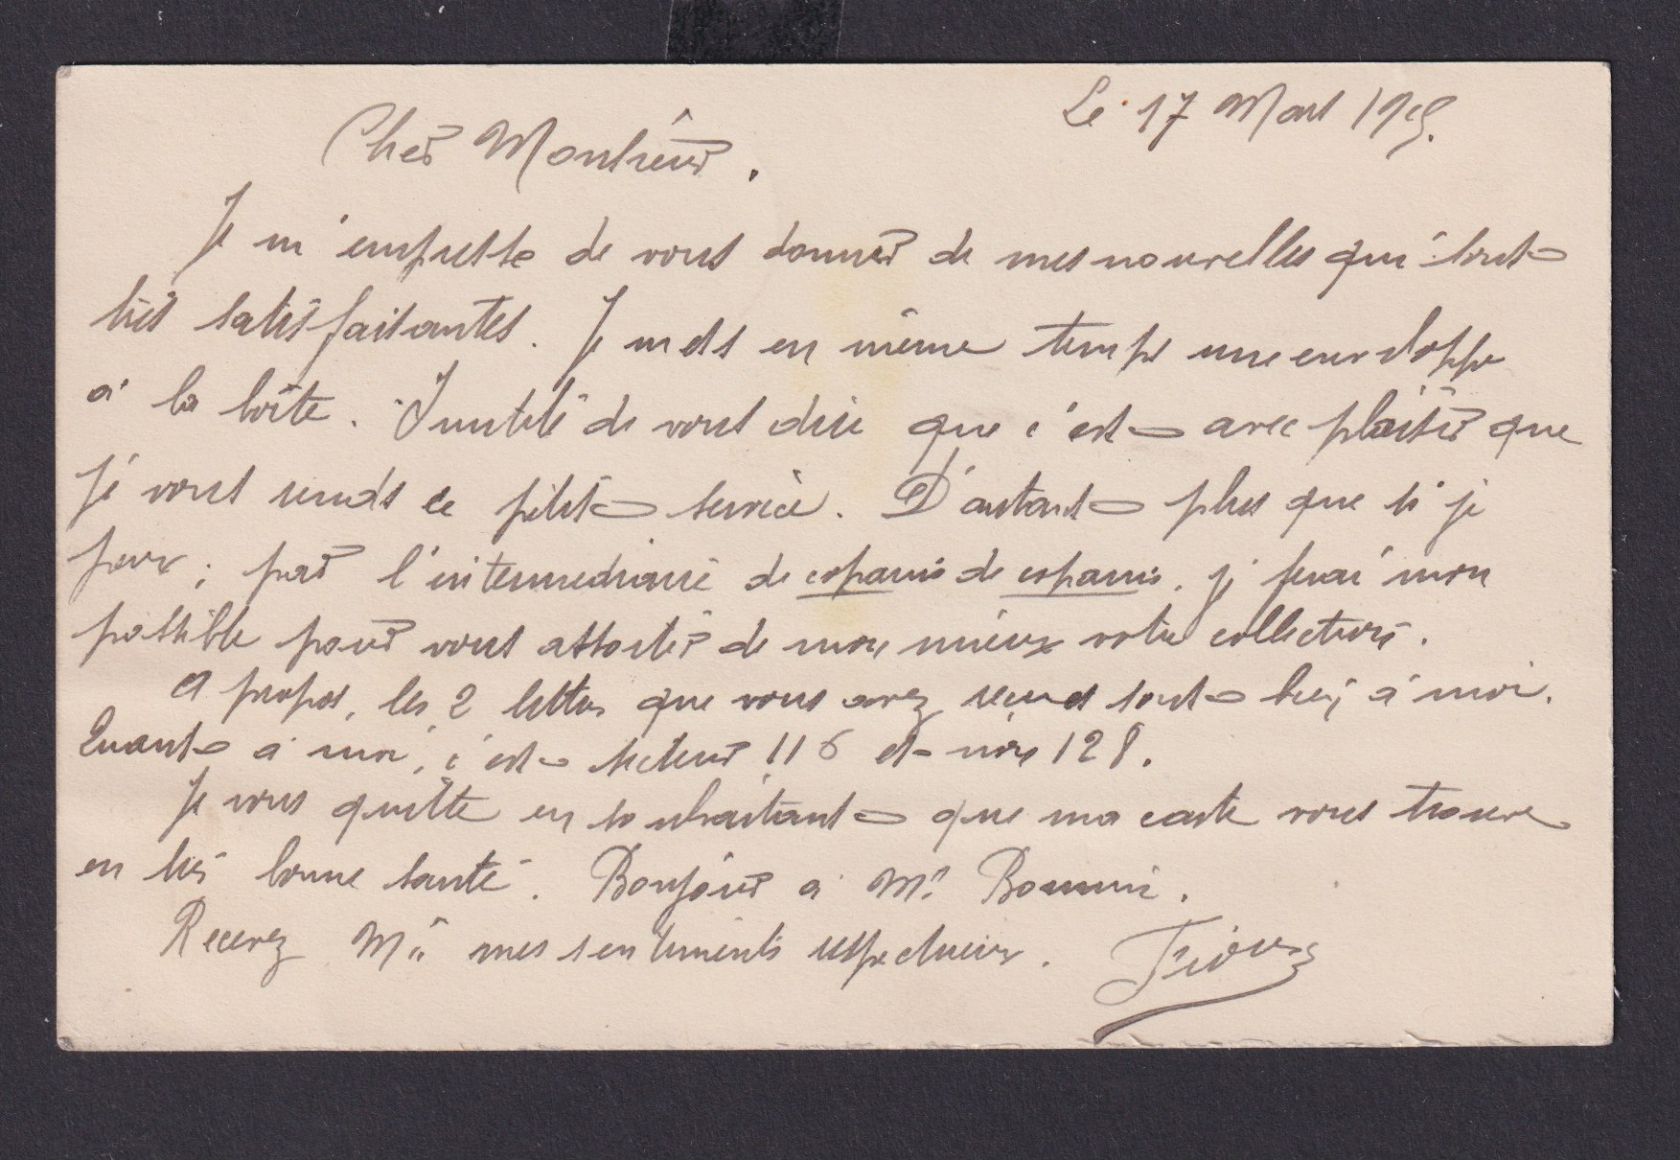 Le 17 Mars 1915.
Cher Monsieur.
Je m'empresse de vous donner de mes nouvelles qui sont
très satisfaisantes. Je mets en même temps une enveloppe
à la boîte. Inutile de vous dire que c'est avec plaisir que
je vous rends ce petit service. D'autant plus que si je
peux; par l'intermédiaire de copains de copains. je ferai mon
possible pour vous assortir de mon mieux votre collection.
A propos, les 2 lettres que vous avez reçues sont bien à moi.
Quant à moi, c'est secteur 116 et non 128.
Je vous quitte en souhaitant que ma carte vous trouve
en très bonne santé. Bonjour à Mr
Recevez Mr mes sentiments respectueux.